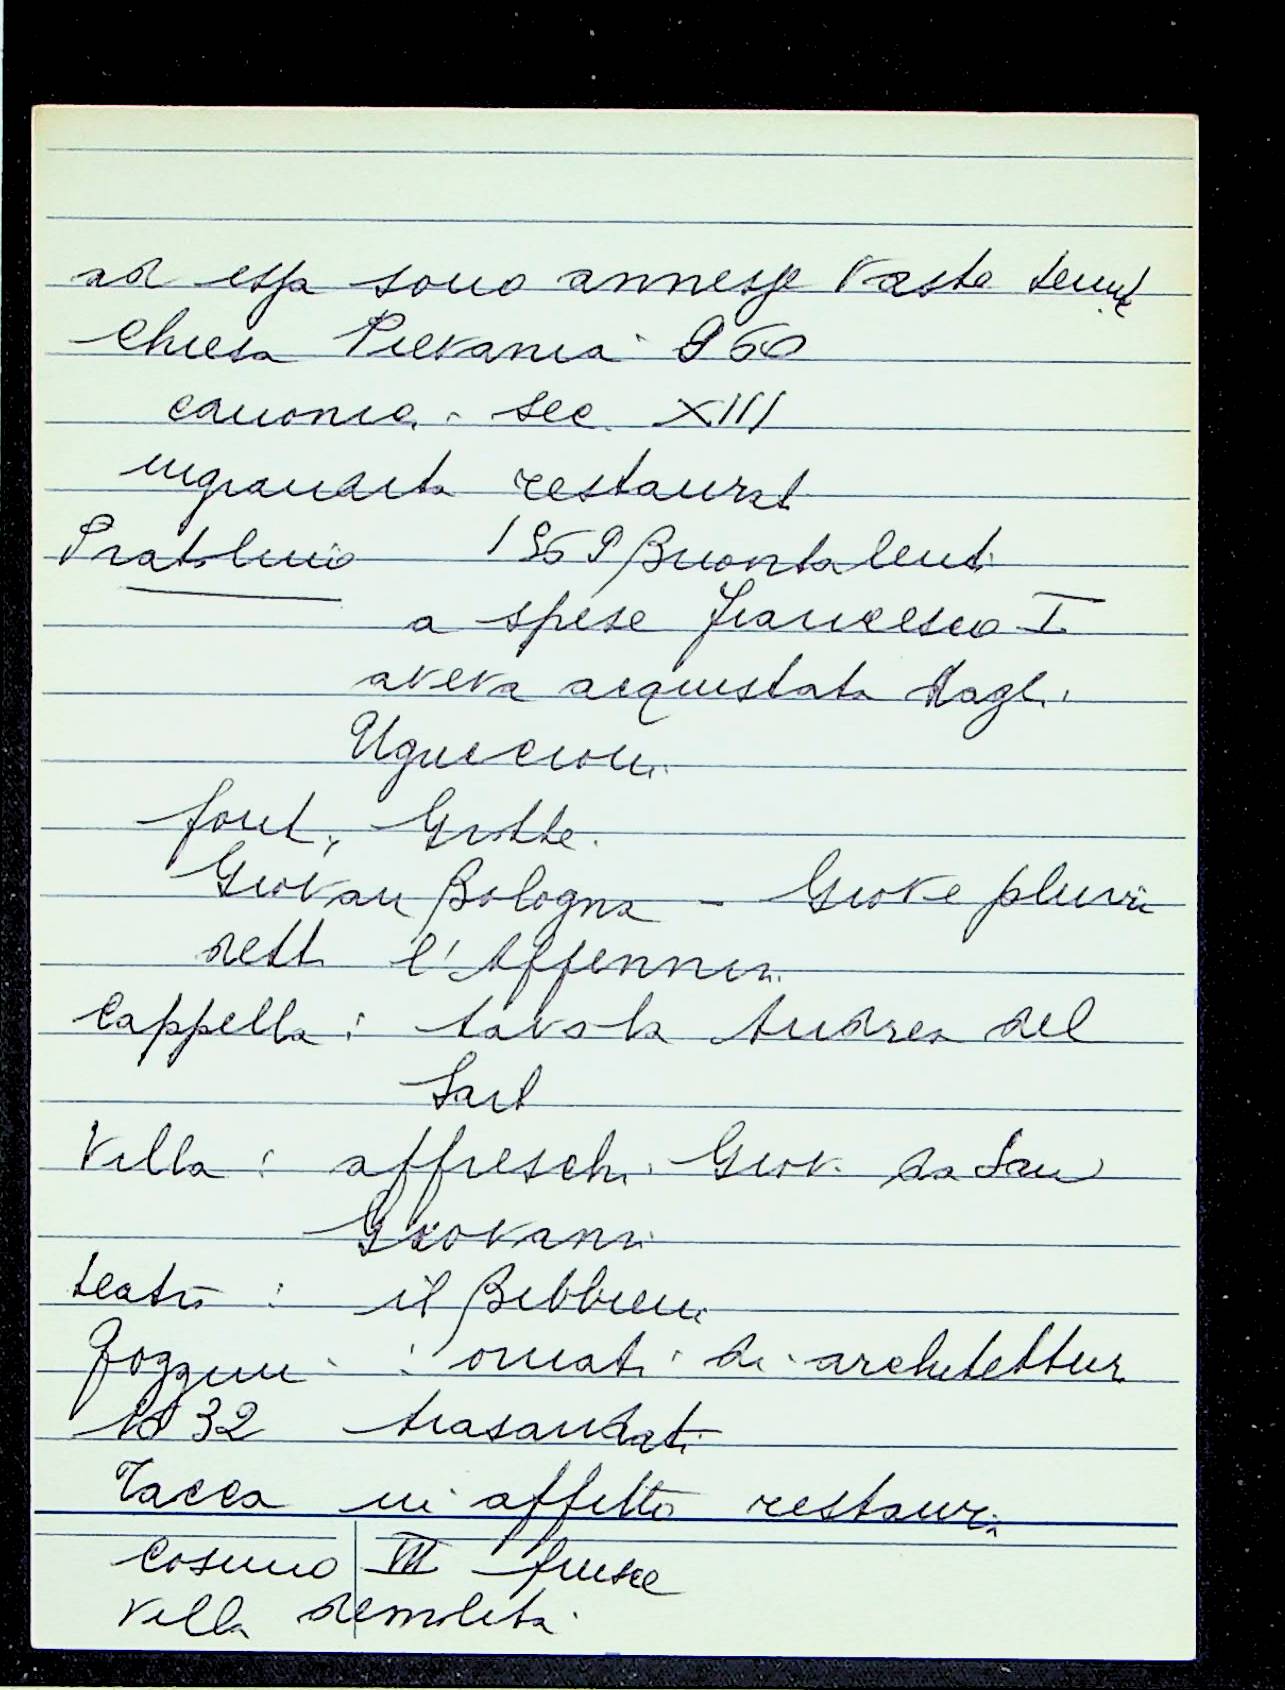 ad essa sono annesse vaste tenute
Chiesa Pievania 960
canonica sec. XIII
ingrandita restaurat
Pratolino 1569 Buontalenti
a spese Francesco I
aveva acquistata dagli
Uguccioni
font. Grotte.
Giovan Bologna - Giove pluvio
detto l'Appennino
Cappella: tavola Andrea del
Sarto
Villa: affreschi Giov. da San
Giovanni
teatro: il Bibbiena
Poggini: ornati di architettura
1832 trasandati
Tacca in affitto restauri
Cosimo III finisce
villa demolita